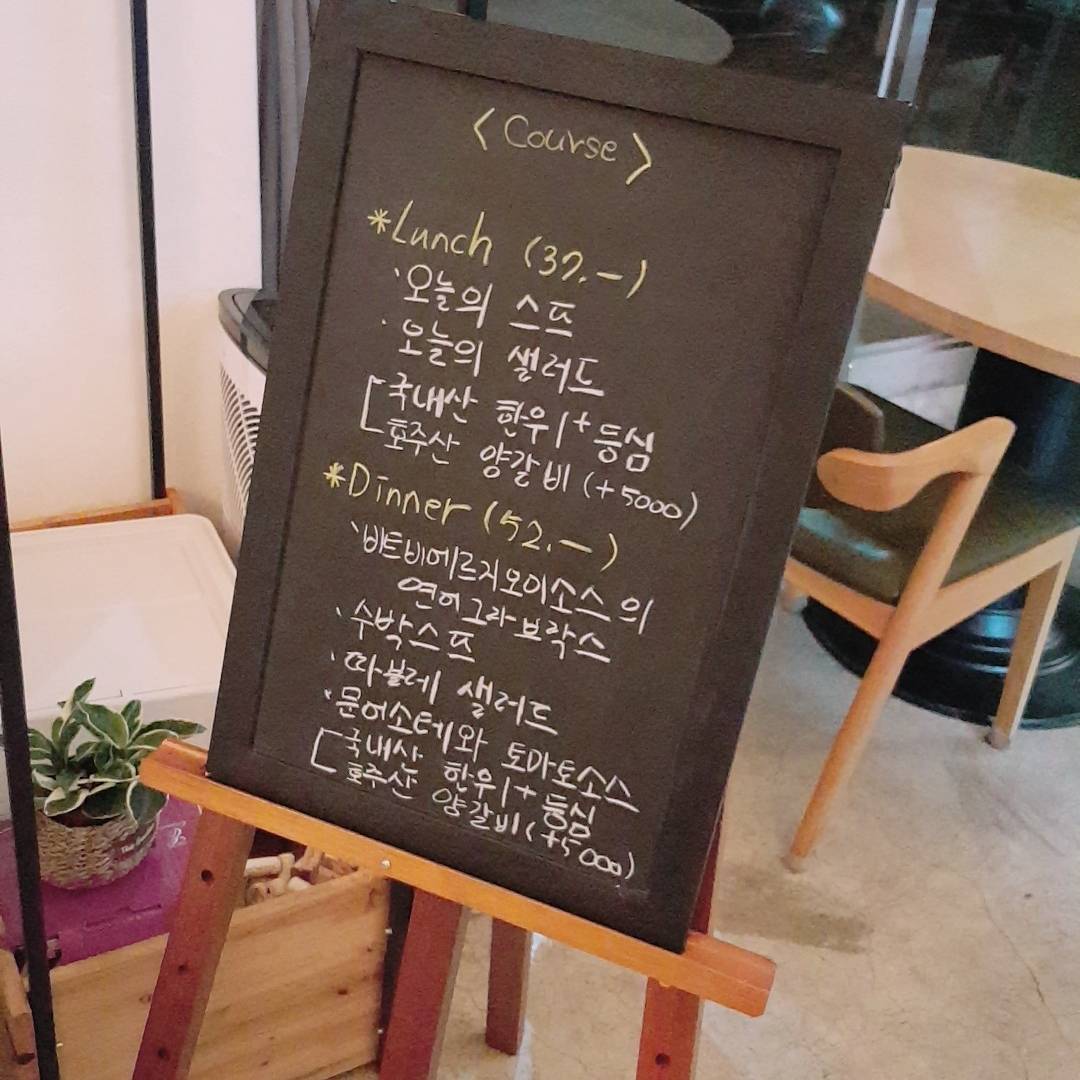 < Course >
*Lunch (37.-)
·오늘의 스프
·오늘의 샐러드
[국내산 한우1+ 등심
호주산 양갈비 (+5000)
*Dinner (52.-)
·비트비에르지오이소스의
연어그라브락스
·수박스프
·따블레 샐러드
·문어소테와 토마토소스
[국내산 한우1+ 등심
호주산 양갈비 (+5000)